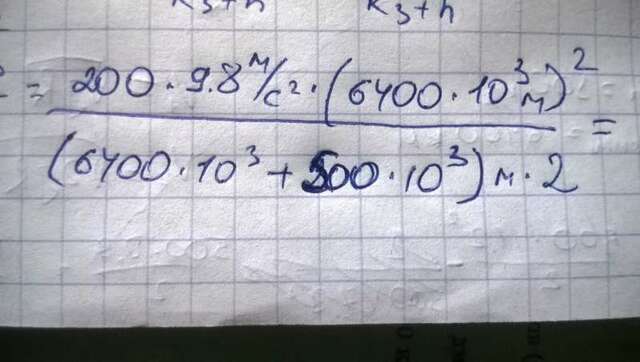 R з + h R з + h
= 200 · 9.8 м/с² · (6400 · 10³ м)² =
(6400 · 10³ + 500 · 10³) м · 2